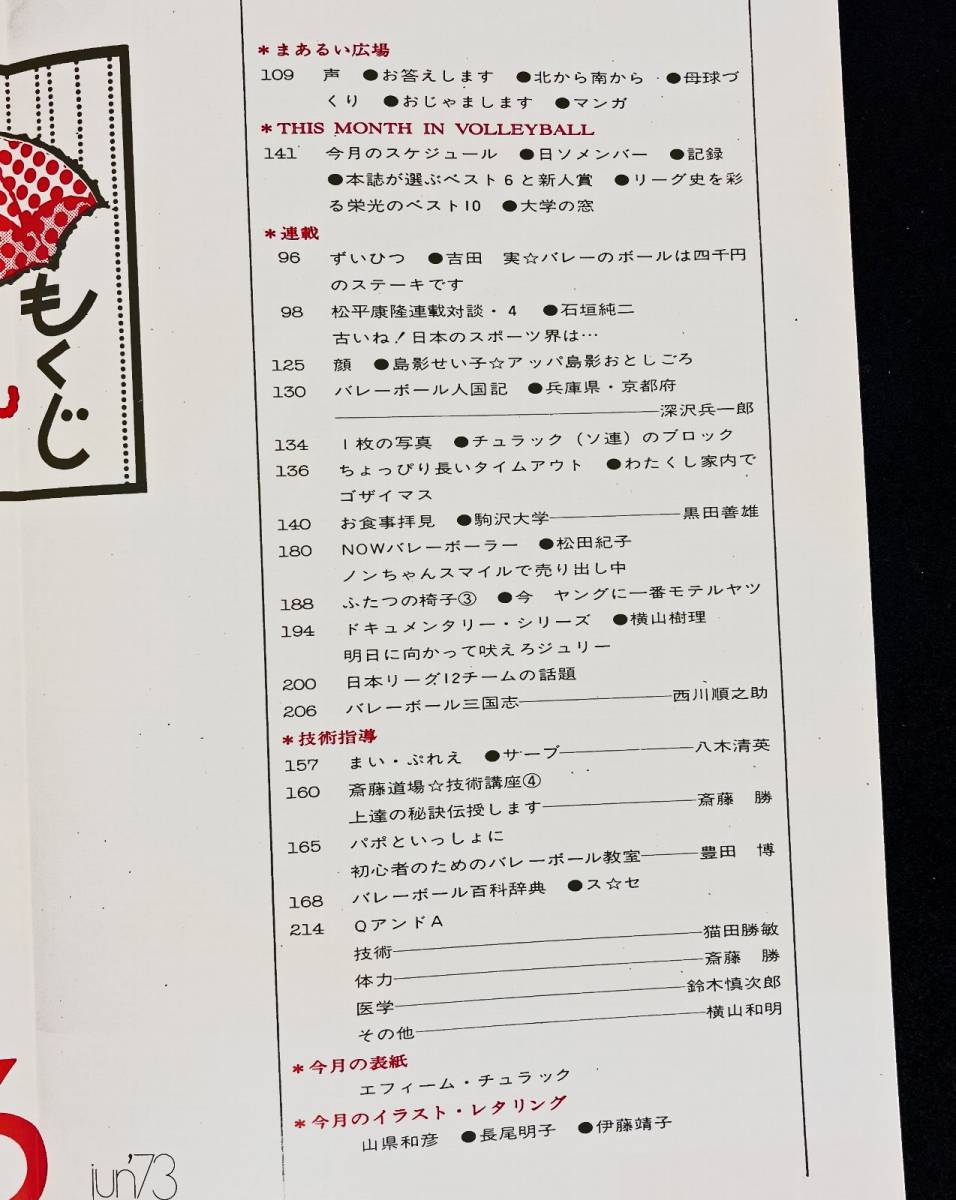 もくじ
＊まあるい広場
109 声 ●お答えします ●北から南から ●母球づ
くり ●おじゃまします ●マンガ
＊THIS MONTH IN VOLLEYBALL
141 今月のスケジュール ●日ソメンバー ●記録
●本誌が選ぶベスト6と新人賞 ●リーグ史を彩
る栄光のベスト10 ●大学の窓
＊連載
96 ずいひつ ●吉田 実☆バレーのボールは四千円
のステーキです
98 松平康隆連載対談・4 ●石垣純二
古いね！日本のスポーツ界は…
125 顔 ●島影せい子☆アッパ島影おとしごろ
130 バレーボール人国記 ●兵庫県・京都府
――深沢兵一郎
134 1枚の写真 ●チュラック（ソ連）のブロック
136 ちょっぴり長いタイムアウト ●わたくし家内で
ゴザイマス
140 お食事拝見 ●駒沢大学――黒田善雄
180 NOWバレーボーラー ●松田紀子
ノンちゃんスマイルで売り出し中
188 ふたつの椅子③ ●今 ヤングに一番モテルヤツ
194 ドキュメンタリー・シリーズ ●横山樹理
明日に向かって吠えろジュリー
200 日本リーグ12チームの話題
206 バレーボール三国志――西川順之助
＊技術指導
157 まい・ぷれえ ●サーブ――八木清英
160 斎藤道場☆技術講座④
上達の秘訣伝授します――斎藤 勝
165 パポといっしょに
初心者のためのバレーボール教室――豊田 博
168 バレーボール百科辞典 ●ス☆セ
214 QアンドA
技術――猫田勝敏
体力――斎藤 勝
医学――鈴木慎次郎
その他――横山和明
＊今月の表紙
エフィーム・チュラック
＊今月のイラスト・レタリング
山県和彦 ●長尾明子 ●伊藤靖子
jun'73